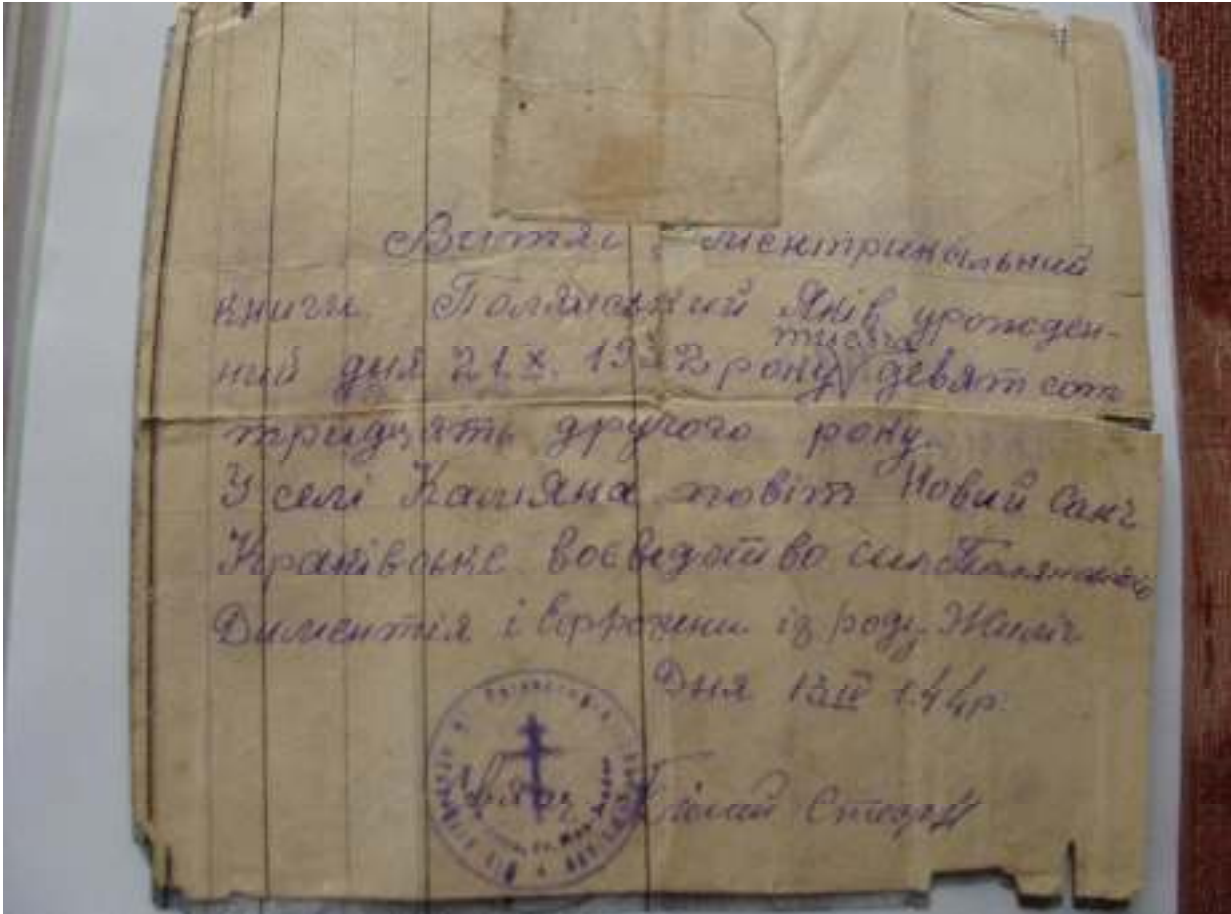 Витяг з мєнтрикальний
книги Полянський Яків урожден-
тисяча
ний дня 21.X. 1932 року девят сот
тридцять другого року.
У селі Камяна повіт Новий Санч
Краківське воєвідство син Полянського
Диментія і із роду Жиліч
Дня 13 IV 144р.
Стефан